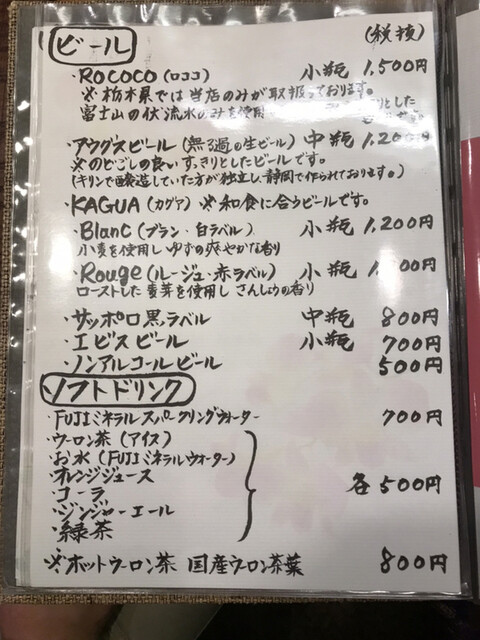 ビール (税抜)
・ROCOCO(ロココ) 小瓶 1,500円
※栃木県では当店のみが取扱っております。
富士山の伏流水のみを使用 りとした
・アウグスビール(無ろ過の生ビール) 中瓶 1,200円
※のどごしの良いすっきりとしたビールです。
(キリンで製造していた方が独立し、静岡で作られております。)
・KAGUA(カグア) ※和食に合うビールです。
・Blanc(ブラン・白ラベル) 小瓶 1,200円
小麦を使用しゆずの爽やかな香り
・Rouge(ルージュ・赤ラベル) 小瓶 円
ローストした麦芽を使用し さんしょうの香り
・サッポロ黒ラベル 中瓶 800円
・エビスビール 小瓶 700円
・ノンアルコールビール 500円
ソフトドリンク
・FUJIミネラルスパークリングウォーター 700円
・ウーロン茶(アイス)
・お水(FUJIミネラルウォーター)
・オレンジジュース
・コーラ 各500円
・ジンジャーエール
・緑茶
・※ホットウーロン茶 国産ウーロン茶葉 800円